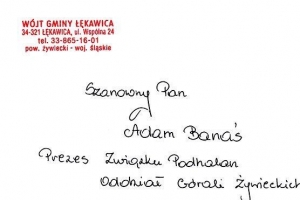 WÓJT GMINY ŁĘKAWICA
34-321 ŁĘKAWICA, ul. Wspólna 24
tel. 33-865-16-01
pow. żywiecki - woj. śląskie
Szanowny Pan
Adam Banaś
Prezes Związku Podhalan
Oddział Górali Żywieckich